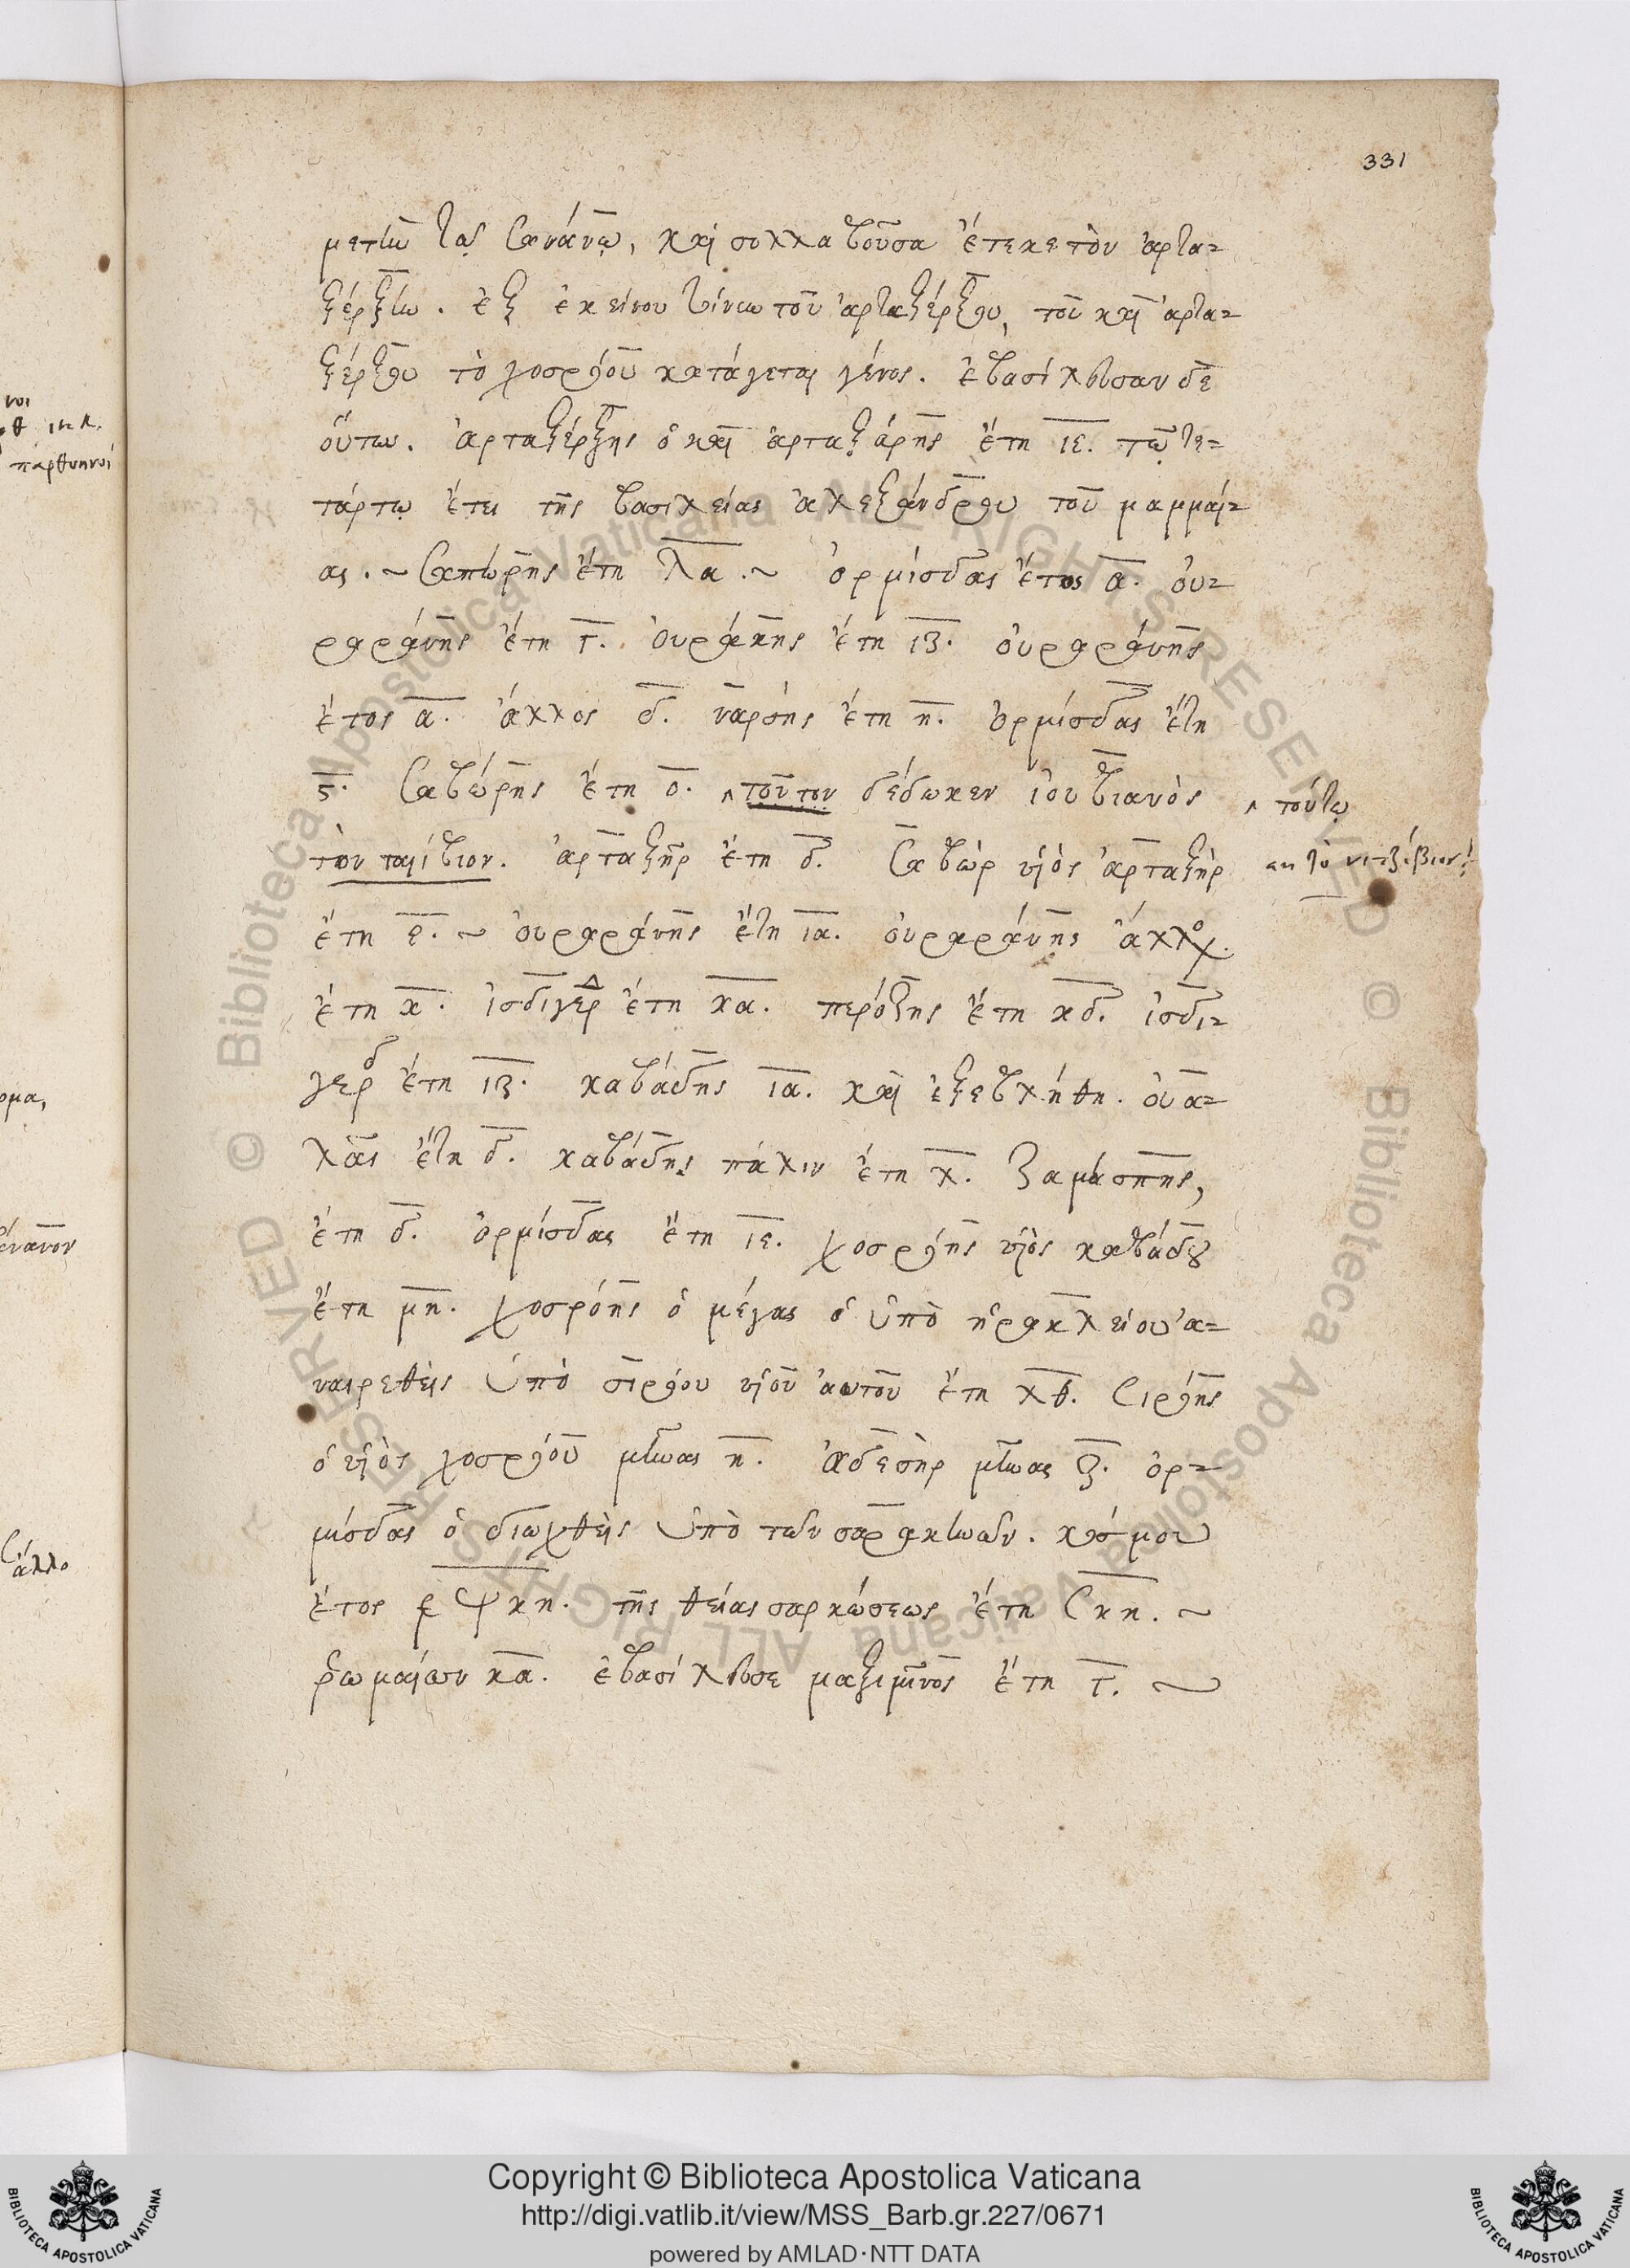 331
μετὰ τῷ Σανάνῳ, καὶ συλλαβοῦσα ἔτεκε τὸν ἀρτα-
ξέρξην. ἐξ ἐκείνου τοῦ ἀρταξέρξου, τοῦ καὶ ἀρτα-
ξέρξου τὸ χοσρόου κατάγεται γένος. ἐβασίλευσαν δὲ
οὕτω. ἀρταξέρξης ὁ καὶ ἀρταξάρης ἔτη ιε. τῷ τε-
τάρτῳ ἔτει τῆς βασιλείας ἀλεξάνδρου τοῦ μαμμαί-
ας. ~ Σαπώρης ἔτη λα. ~ ὁρμίσδας ἔτος α. οὐ-
ραράνης ἔτη γ. Οὐράκης ἔτη ιζ. οὐραράνης
ἔτος α. ἄλλος δ. ναρσῆς ἔτη η. ὁρμίσδας ἔτη
ς. Σαβώρης ἔτη ο. ‸ τοῦτον δέδωκεν ἰουβιανὸς ‸ τούτῳ
τὸν ταίβιον. ἀρταξὴρ ἔτη δ. Σαβὼρ υἱὸς ἀρταξὴρ
ἔτη ε. ~ οὐραράνης ἔτη ια. οὐραράνης ἄλλος
ἔτη κ. ἰσδιγερδ ἔτη κα. περόζης ἔτη κδ. ἰσδι-
γερδ ἔτη ιζ. καβάδης ια. καὶ ἐξεβλήθη. οὐα-
λὰς ἔτη δ. καβάδης πάλιν ἔτη λ. Ζαμάσπης,
ἔτη δ. ὁρμίσδας ἔτη ιε. χοσρόης υἱὸς καβάδου
ἔτη μη. χοσρόης ὁ μέγας ὁ ὑπὸ ἡρακλείου ἀ-
ναιρεθεὶς ὑπὸ σιρόου υἱοῦ αὐτοῦ ἔτη λθ. Σιρόης
ὁ υἱὸς χοσρόου μῆνας η. ἀδεσὴρ μῆνας ζ. ὁρ-
μίσδας ὁ διωχθεὶς ὑπὸ τῶν σαρακηνῶν. κόσμου
ἔτος ε ψκη. τῆς θείας σαρκώσεως ἔτη Σκη. ~
ῥωμαίων κα. ἐβασίλευσε μαξιμῖνος ἔτη γ. ~
νοι
παρθυηνοί
ομα,
ἄλλο
© Biblioteca Apostolica Vaticana ALL RIGHTS RESERVED © Biblioteca Apostolica Vaticana ALL RIGHTS RESERVED
Copyright © Biblioteca Apostolica Vaticana
http://digi.vatlib.it/view/MSS_Barb.gr.227/0671
powered by AMLAD·NTT DATA
BIBLIOTECA APOSTOLICA VATICANA
BIBLIOTECA APOSTOLICA VATICANA